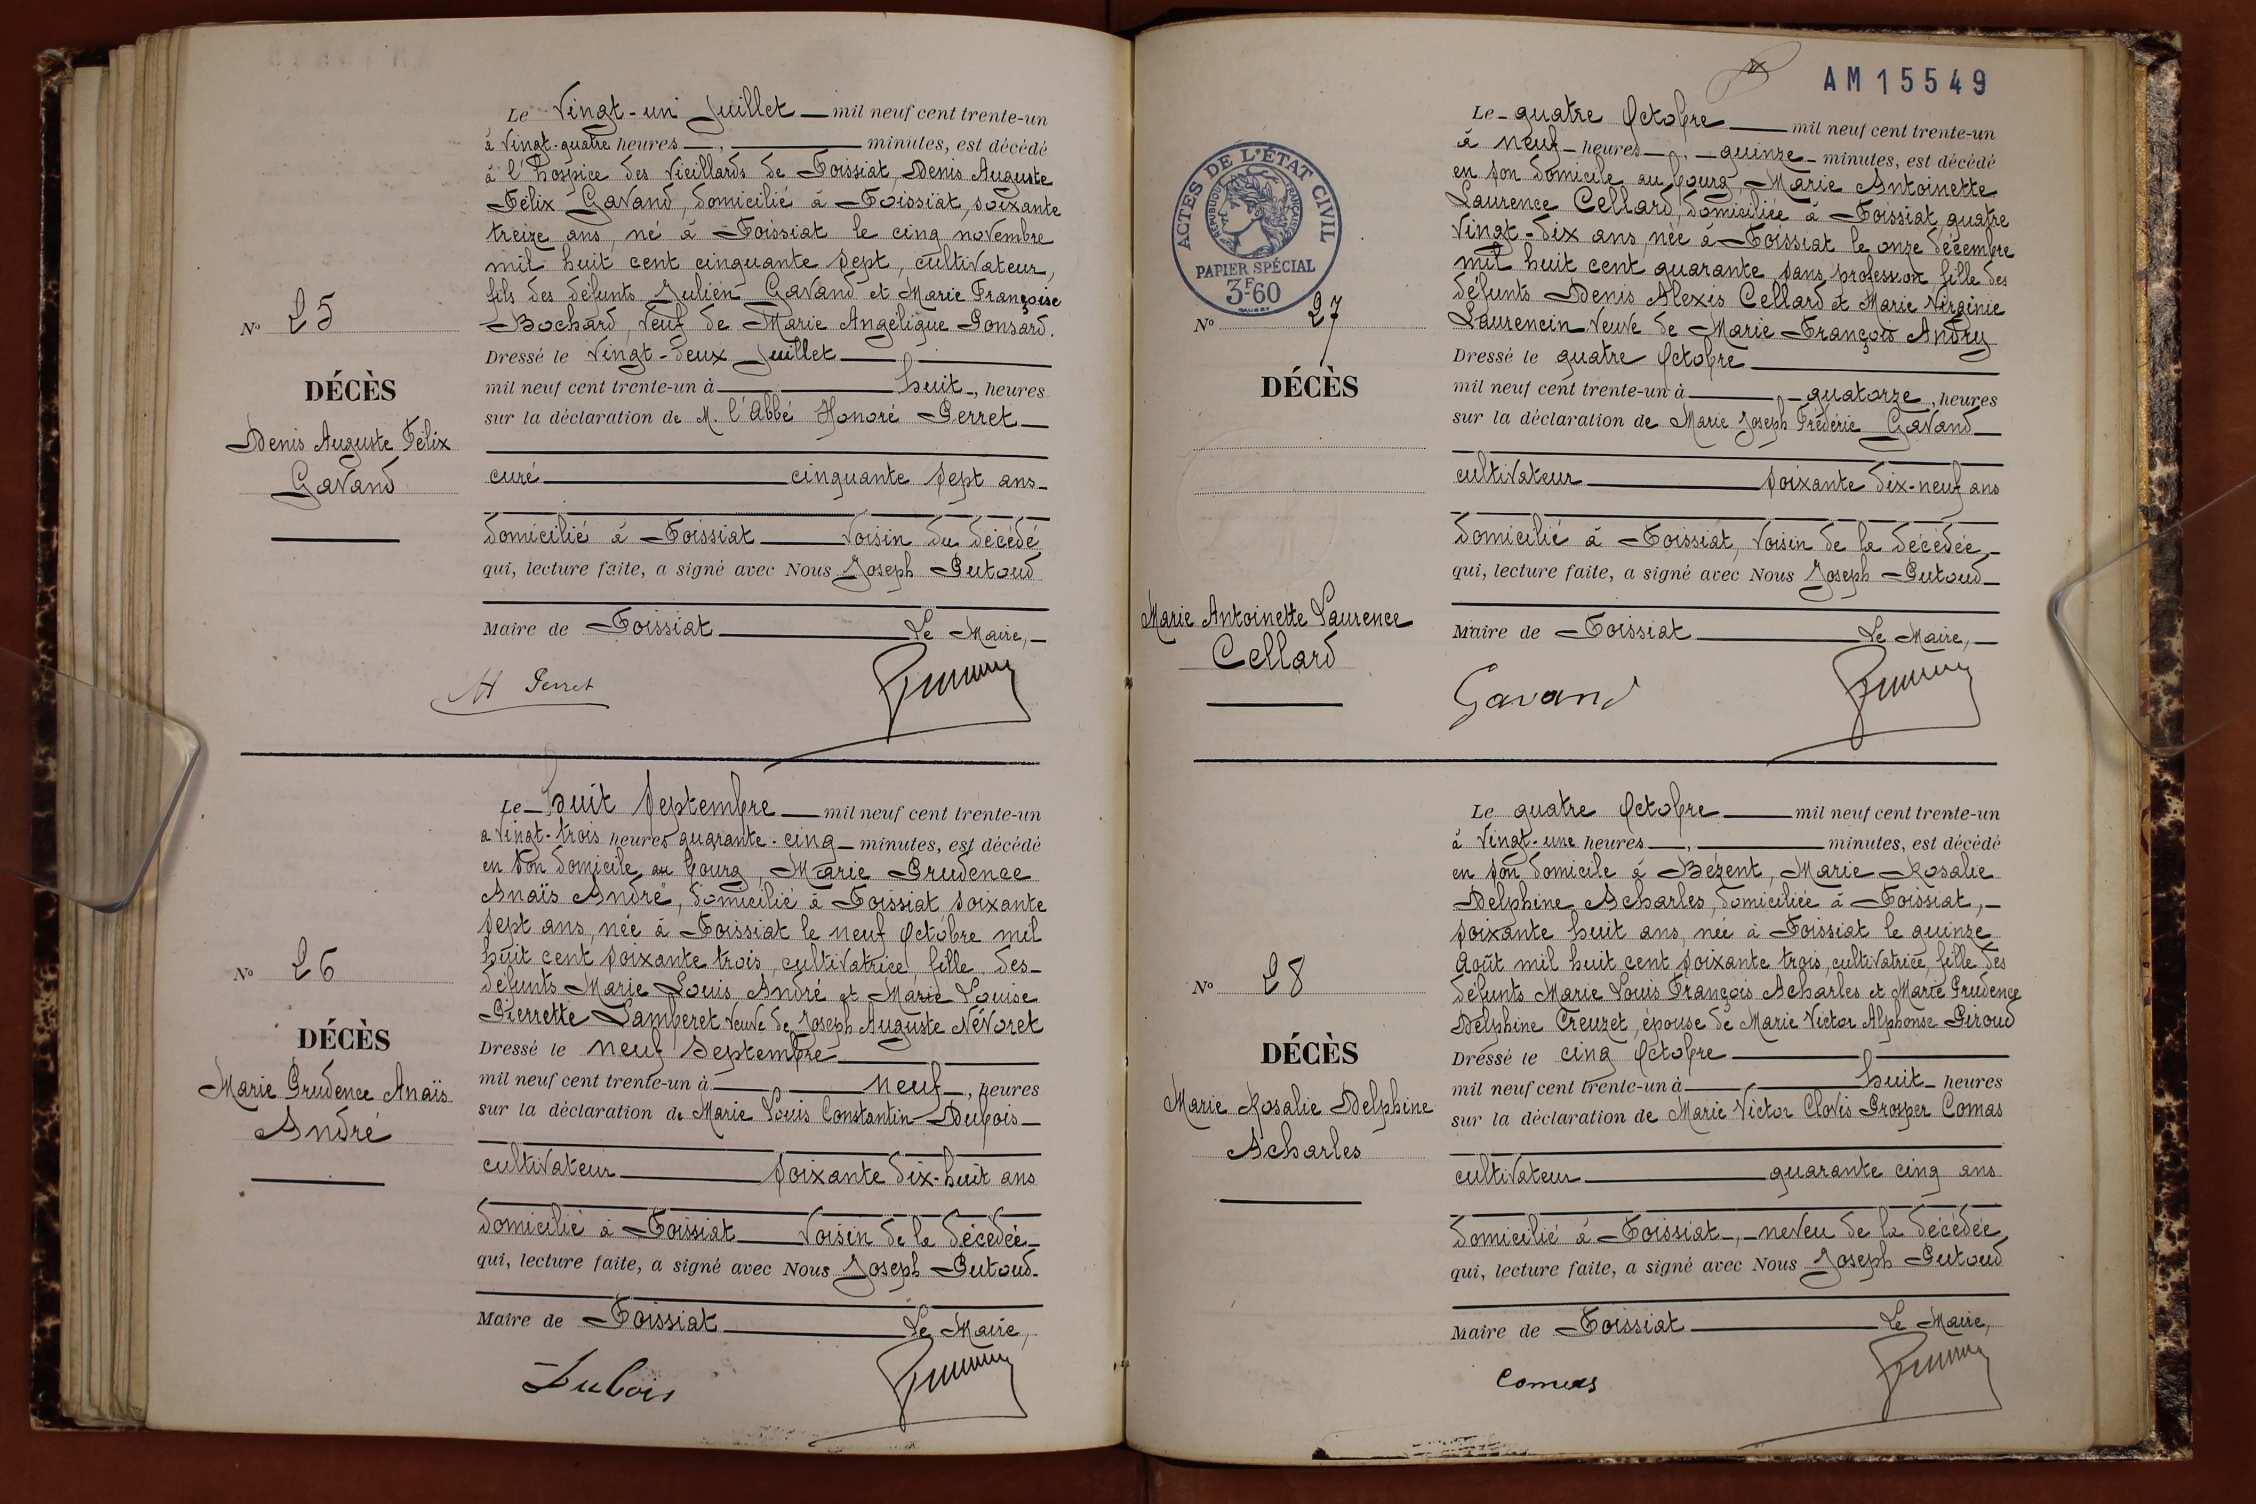 Le Vingt-un Juillet mil neuf cent trente-un
à Vingt-quatre heures, minutes, est décédé
à l'hospice des Vieillards de Foissiat, Denis Auguste
Félix Gavand, domicilié à Foissiat, soixante
treize ans, né à Foissiat le cinq novembre
mil huit cent cinquante sept, cultivateur,
fils des défunts Julien Gavand et Marie Françoise
Bochard, Veuf de Marie Angélique Ponsard.
Dressé le Vingt-deux Juillet
mil neuf cent trente-un à huit, heures
sur la déclaration de M. l'Abbé Honoré Perret
curé cinquante sept ans
domicilié à Foissiat Voisin du décédé
qui, lecture faite, a signé avec Nous Joseph Putoud
Maire de Foissiat Le Maire,
H Perret
N° 25
DÉCÈS
Denis Auguste Félix
Gavand
Le huit Septembre mil neuf cent trente-un
à Vingt-trois heures quarante-cinq minutes, est décédé
en son domicile au bourg, Marie Prudence
Anaïs André, domicilié à Foissiat soixante
sept ans, née à Foissiat le neuf Octobre mil
huit cent soixante trois, cultivatrice, fille des
défunts Marie Louis André et Marie Louise
Pierrette Lamperet Veuve de Joseph Auguste Névoret
Dressé le neuf Septembre
mil neuf cent trente-un à neuf, heures
sur la déclaration de Marie Louis Constantin Dubois
cultivateur soixante dix-huit ans
domicilié à Foissiat Voisin de la décédée
qui, lecture faite, a signé avec Nous Joseph Putoud.
Maire de Foissiat Le Maire,
Dubois
N° 26
DÉCÈS
Marie Prudence Anaïs
André
AM 15549
ACTES DE L'ÉTAT CIVIL
RÉPUBLIQUE FRANÇAISE
PAPIER SPÉCIAL
3F60
Le quatre Octobre mil neuf cent trente-un
à neuf heures, quinze minutes, est décédé
en son domicile au bourg, Marie Antoinette
Laurence Cellard, domiciliée à Foissiat, quatre
Vingt-dix ans, née à Foissiat le onze décembre
mil huit cent quarante, sans profession, fille des
défunts Denis Alexis Cellard et Marie Virginie
Laurencin Veuve de Marie François Andry
Dressé le quatre Octobre
mil neuf cent trente-un à quatorze, heures
sur la déclaration de Marie Joseph Frédéric Gavand
cultivateur soixante dix-neuf ans
domicilié à Foissiat, Voisin de la décédée,
qui, lecture faite, a signé avec Nous Joseph Putoud
Maire de Foissiat Le Maire,
Gavand
N° 27
DÉCÈS
Marie Antoinette Laurence
Cellard
Le quatre Octobre mil neuf cent trente-un
à Vingt-une heures, minutes, est décédé
en son domicile à Bézent, Marie Rosalie
Delphine Acharles, domiciliée à Foissiat,
soixante huit ans, née à Foissiat le quinze
Août mil huit cent soixante trois, cultivatrice, fille des
défunts Marie Louis François Acharles et Marie Prudence
Delphine Creuzet, épouse de Marie Victor Alphonse Piroud
Dressé le cinq Octobre
mil neuf cent trente-un à huit heures
sur la déclaration de Marie Victor Clovis Prosper Comas
cultivateur quarante cinq ans
domicilié à Foissiat, neveu de la décédée
qui, lecture faite, a signé avec Nous Joseph Putoud
Maire de Foissiat Le Maire,
Comas
N° 28
DÉCÈS
Marie Rosalie Delphine
Acharles